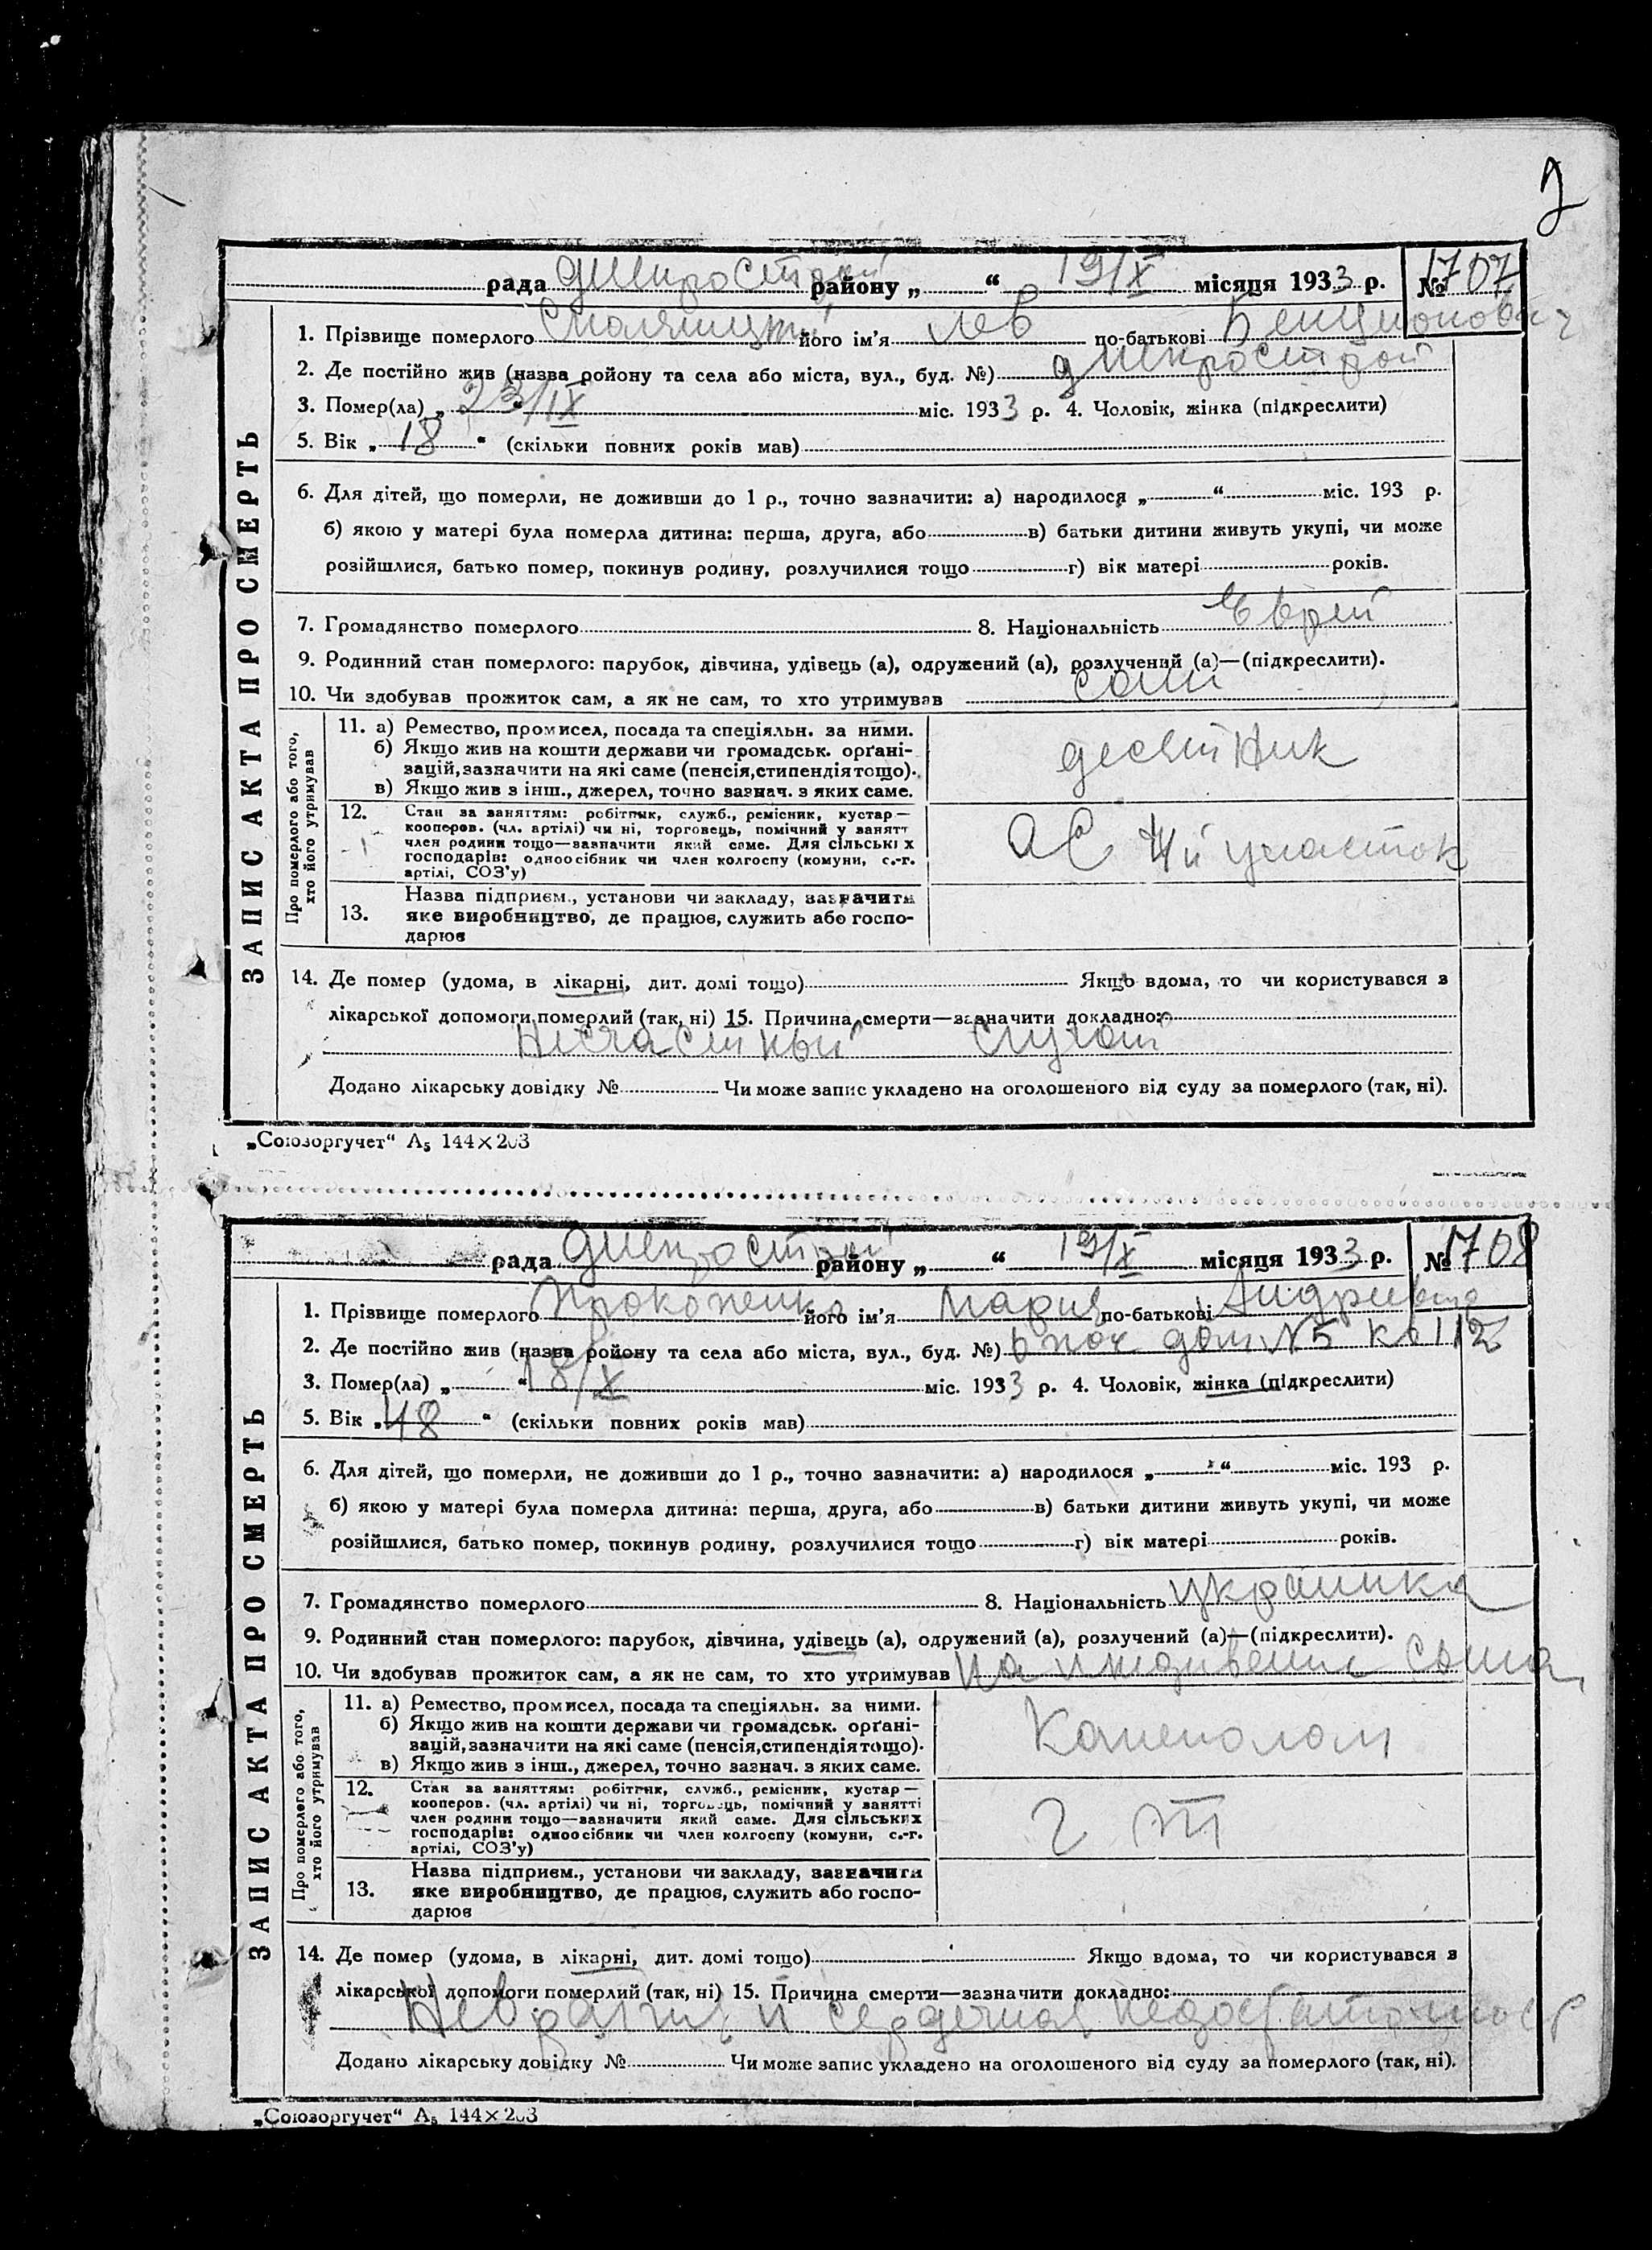 2
рада Днепрострой району „ “ 19/X місяця 1933 р. № 1707
ЗАПИС АКТА ПРО СМЕРТЬ
1. Прізвище померлого його ім'я Лев по-батькові Бенционович
2. Де постійно жив (назва ройону та села або міста, вул., буд. №) Днепрострой
3. Помер(ла) „ 23/IX “ міс. 1933 р. 4. Чоловік, жінка (підкреслити)
5. Вік „ 18 “ (скільки повних років мав)
6. Для дітей, що померли, не доживши до 1 р., точно зазначити: а) народилося „ “ міс. 193 р.
б) якою у матері була померла дитина: перша, друга, або в) батьки дитини живуть укупі, чи може
розійшлися, батько помер, покинув родину, розлучилися тощо г) вік матері років.
7. Громадянство померлого 8. Національність Еврей
9. Родинний стан померлого: парубок, дівчина, удівець (а), одружений (а), розлучений (а)—(підкреслити).
10. Чи здобував прожиток сам, а як не сам, то хто утримував сам
Про померлого або того, хто його утримував
11. а) Ремество, промисел, посада та спеціяльн. за ними.
б) Якщо жив на кошти держави чи громадськ. орґані-
зацій, зазначити на які саме (пенсія, стипендія тощо).
в) Якщо жив з інш., джерел, точно зазнач. з яких саме.
десятник
12. Стан за заняттям: робітник, служб., ремісник, кустар—
кооперов. (чл. артілі) чи ні, торговець, помічний у занятт
член родини тощо—зазначити який саме. Для сільських
господарів: одноосібник чи член колгоспу (комуни, с.-г.
артілі, СОЗ'у)
4й участок
Назва підприєм., установи чи закладу, зазначити
13. яке виробництво, де працює, служить або госпо-
дарює
14. Де помер (удома, в лікарні, дит. домі тощо) Якщо вдома, то чи користувався з
лікарської допомоги померлий (так, ні) 15. Причина смерти—зазначити докладно:
Несчастный случай
Додано лікарську довідку № Чи може запис укладено на оголошеного від суду за померлого (так, ні).
„Союзоргучет“ А5 144×203
рада Днепрострой району „ “ 19/X місяця 1933 р. № 1708
ЗАПИС АКТА ПРО СМЕРТЬ
1. Прізвище померлого Прокопенко його ім'я Мария по-батькові
2. Де постійно жив (назва ройону та села або міста, вул., буд. №) 6 пос дом N5 кв 112
3. Помер(ла) „ “ 18/X міс. 1933 р. 4. Чоловік, жінка (підкреслити)
5. Вік „ 48 “ (скільки повних років мав)
6. Для дітей, що померли, не доживши до 1 р., точно зазначити: а) народилося „ “ міс. 193 р.
б) якою у матері була померла дитина: перша, друга, або в) батьки дитини живуть укупі, чи може
розійшлися, батько помер, покинув родину, розлучилися тощо г) вік матері років.
7. Громадянство померлого 8. Національність украинка
9. Родинний стан померлого: парубок, дівчина, удівець (а), одружений (а), розлучений (а)—(підкреслити).
10. Чи здобував прожиток сам, а як не сам, то хто утримував на иждивении сына
Про померлого або того, хто його утримував
11. а) Ремество, промисел, посада та спеціяльн. за ними.
б) Якщо жив на кошти держави чи громадськ. орґані-
зацій, зазначити на які саме (пенсія, стипендія тощо).
в) Якщо жив з інш., джерел, точно зазнач. з яких саме.
Каменолом
12. Стан за заняттям: робітник, служб., ремісник, кустар—
кооперов. (чл. артілі) чи ні, торговець, помічний у занятті
член родини тощо—зазначити який саме. Для сільських
господарів: одноосібник чи член колгоспу (комуни, с.-г.
артілі, СОЗ'у)
Назва підприєм., установи чи закладу, зазначити
13. яке виробництво, де працює, служить або госпо-
дарює
14. Де помер (удома, в лікарні, дит. домі тощо) Якщо вдома, то чи користувався з
лікарської допомоги померлий (так, ні) 15. Причина смерти—зазначити докладно:
Невралгия и сердечная недостаточность
Додано лікарську довідку № Чи може запис укладено на оголошеного від суду за померлого (так, ні).
„Союзоргучет“ А5 144×203